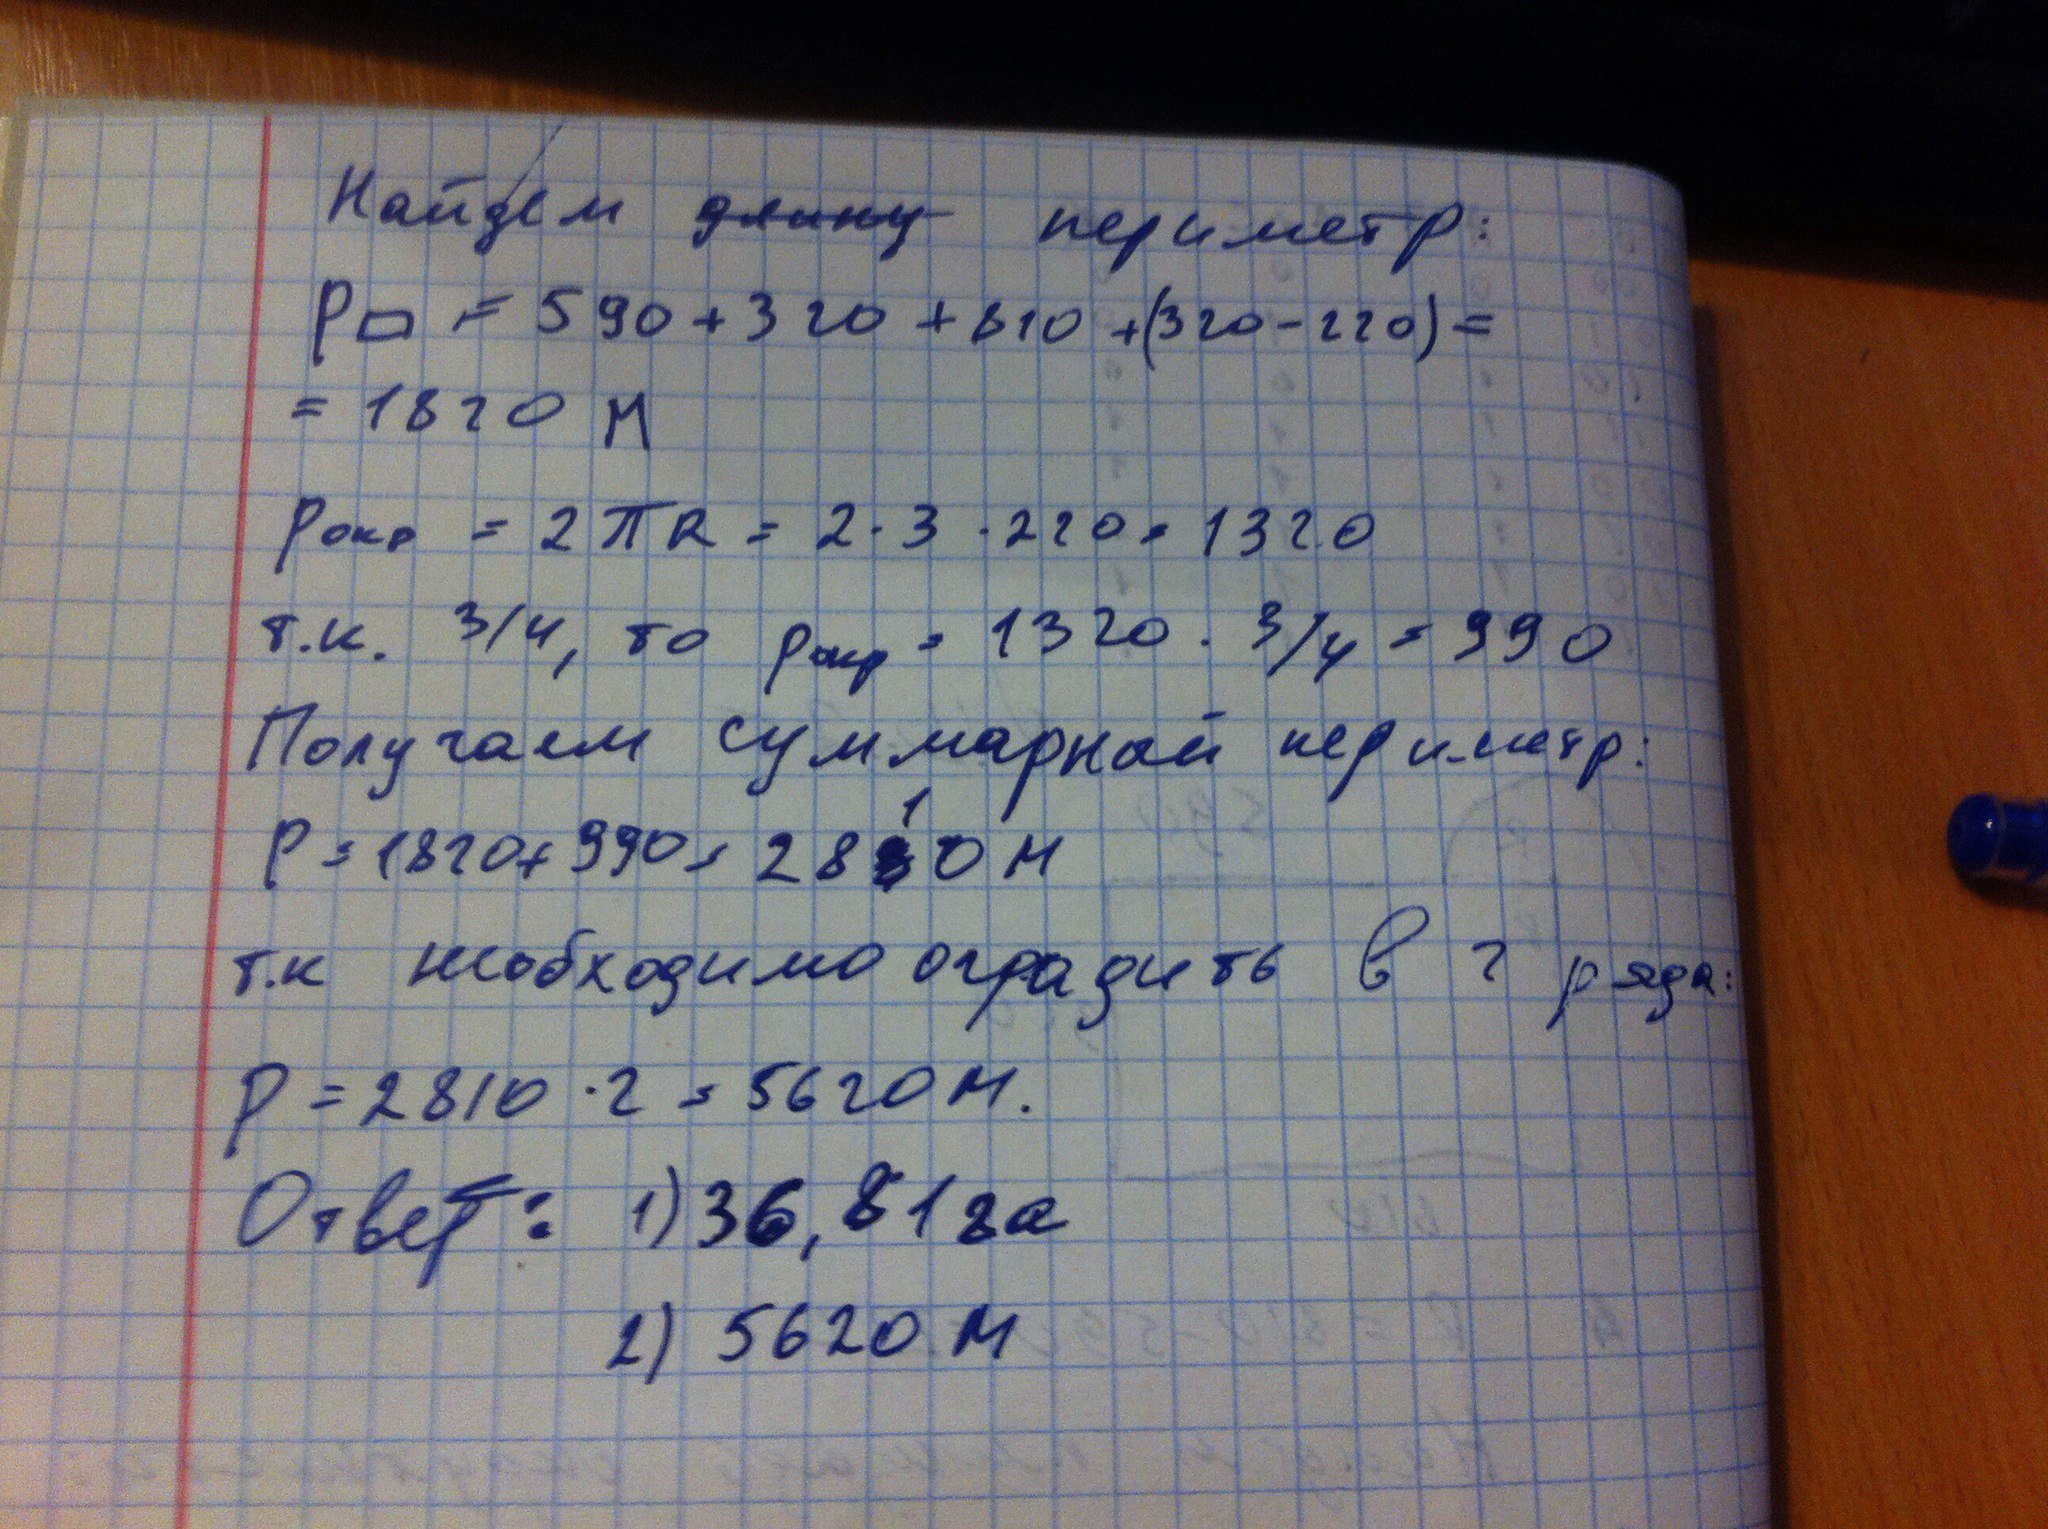 Найдем длину периметр:
P▭ = 590 + 320 + 810 + (320 - 220) =
= 1820 м
Pокр = 2πR = 2·3·220 = 1320
т.к. 3/4, то Pокр = 1320 · 3/4 = 990
Получаем суммарный периметр:
P = 1820 + 990 = 2810 м
т.к необходимо оградить в 2 ряда:
P = 2810 · 2 = 5620 м.
Ответ: 1) 36,81 га
2) 5620 м